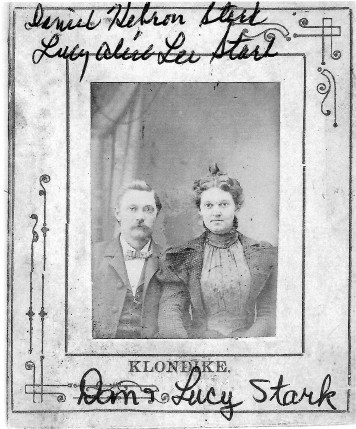 Daniel Hebron Stark
Lucy Alice Lee Stark
KLONDIKE.
Dan & Lucy Stark